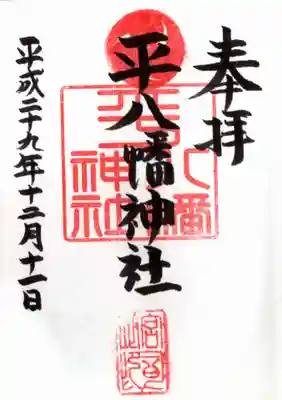 奉拝
平八幡神社
平成二十九年十二月十一日
平八幡
神社
宮司
之印